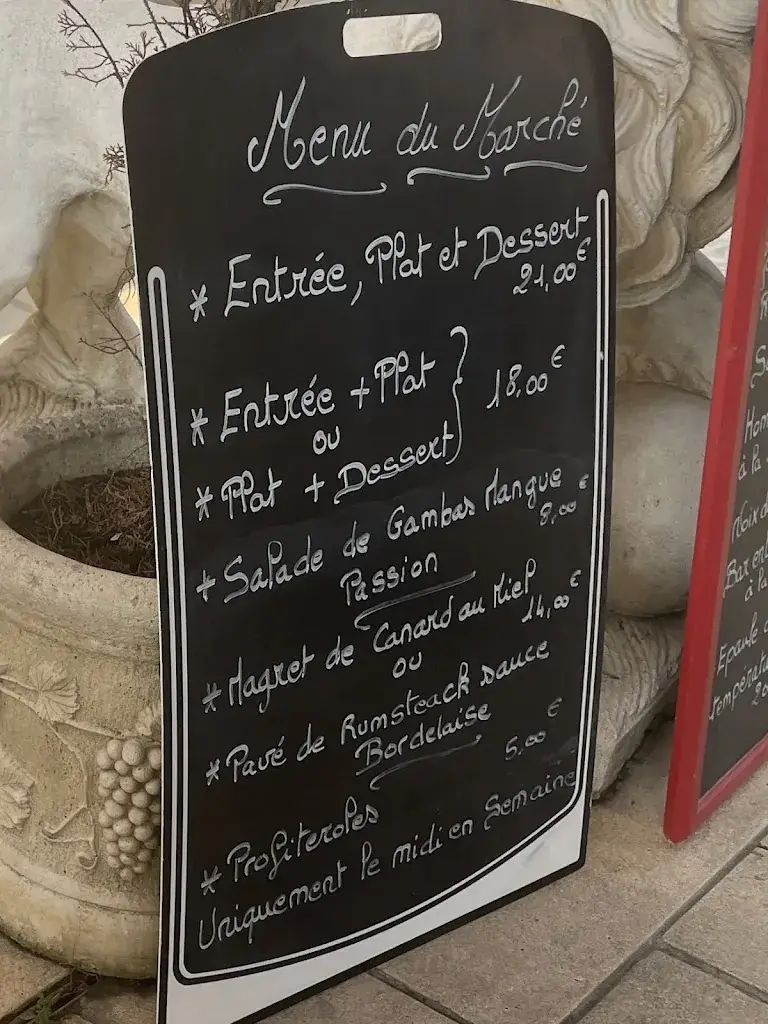 Menu du Marché
* Entrée, Plat et Dessert
21,00€
* Entrée + Plat
ou
* Plat + Dessert
18,00€
+ Salade de Gambas Mangue
Passion
8,00€
* Magret de Canard au Miel
14,00€
ou
* Pavé de Rumsteack sauce
Bordelaise
* Profiteroles
5,00€
Uniquement le midi en Semaine
Hom
à la
Noix d
Bar en
à la
Epaule d
températu